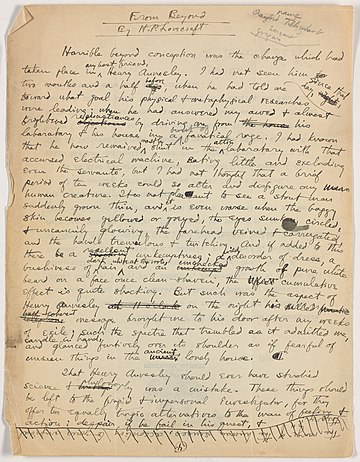 From Beyond
By H. P. Lovecraft
name
Horrible beyond conception was the change which had
taken place in my best friend, Henry Annesley. I had not seen him since that day
two months and a half before when he had told me
toward what goal his physical & metaphysical researches
were leading; when he had answered my awed & almost
frightened remonstrances by driving me from his
laboratory & his house in a burst of fanatical rage. I had known
that he now remained mostly shut in the attic laboratory with that
accursed electrical machine, eating little and excluding
even the servants, but I had not thought that a brief
period of ten weeks could so alter and disfigure any
human creature. It is not pleasant to see a stout man
suddenly grown thin, and it is even worse when the baggy
skin becomes yellowed or greyed, the eyes sunken, circled,
& uncannily glowing, the forehead veined & corrugated,
and the hands tremulous & twitching. And if added to this
there be a repellent unkemptness; a wild disorder of dress, a
bushiness of dark hair white at the roots, and an unchecked growth of pure white
beard on a face once clean-shaven, the cumulative
effect is quite shocking. But such was the aspect of
Henry Annesley on the night his
message brought me to his door after my weeks
of exile; such the spectre that trembled as it admitted me,
candle in hand,
and glanced furtively over its shoulder as if fearful of
unseen things in the ancient, lonely house.
That Henry Annesley should ever have studied
science & philosophy was a mistake. These things should
be left to the frigid & impersonal investigator, for they
offer two equally tragic alternatives to the man of feeling &
action; despair if he fail in his quest, &